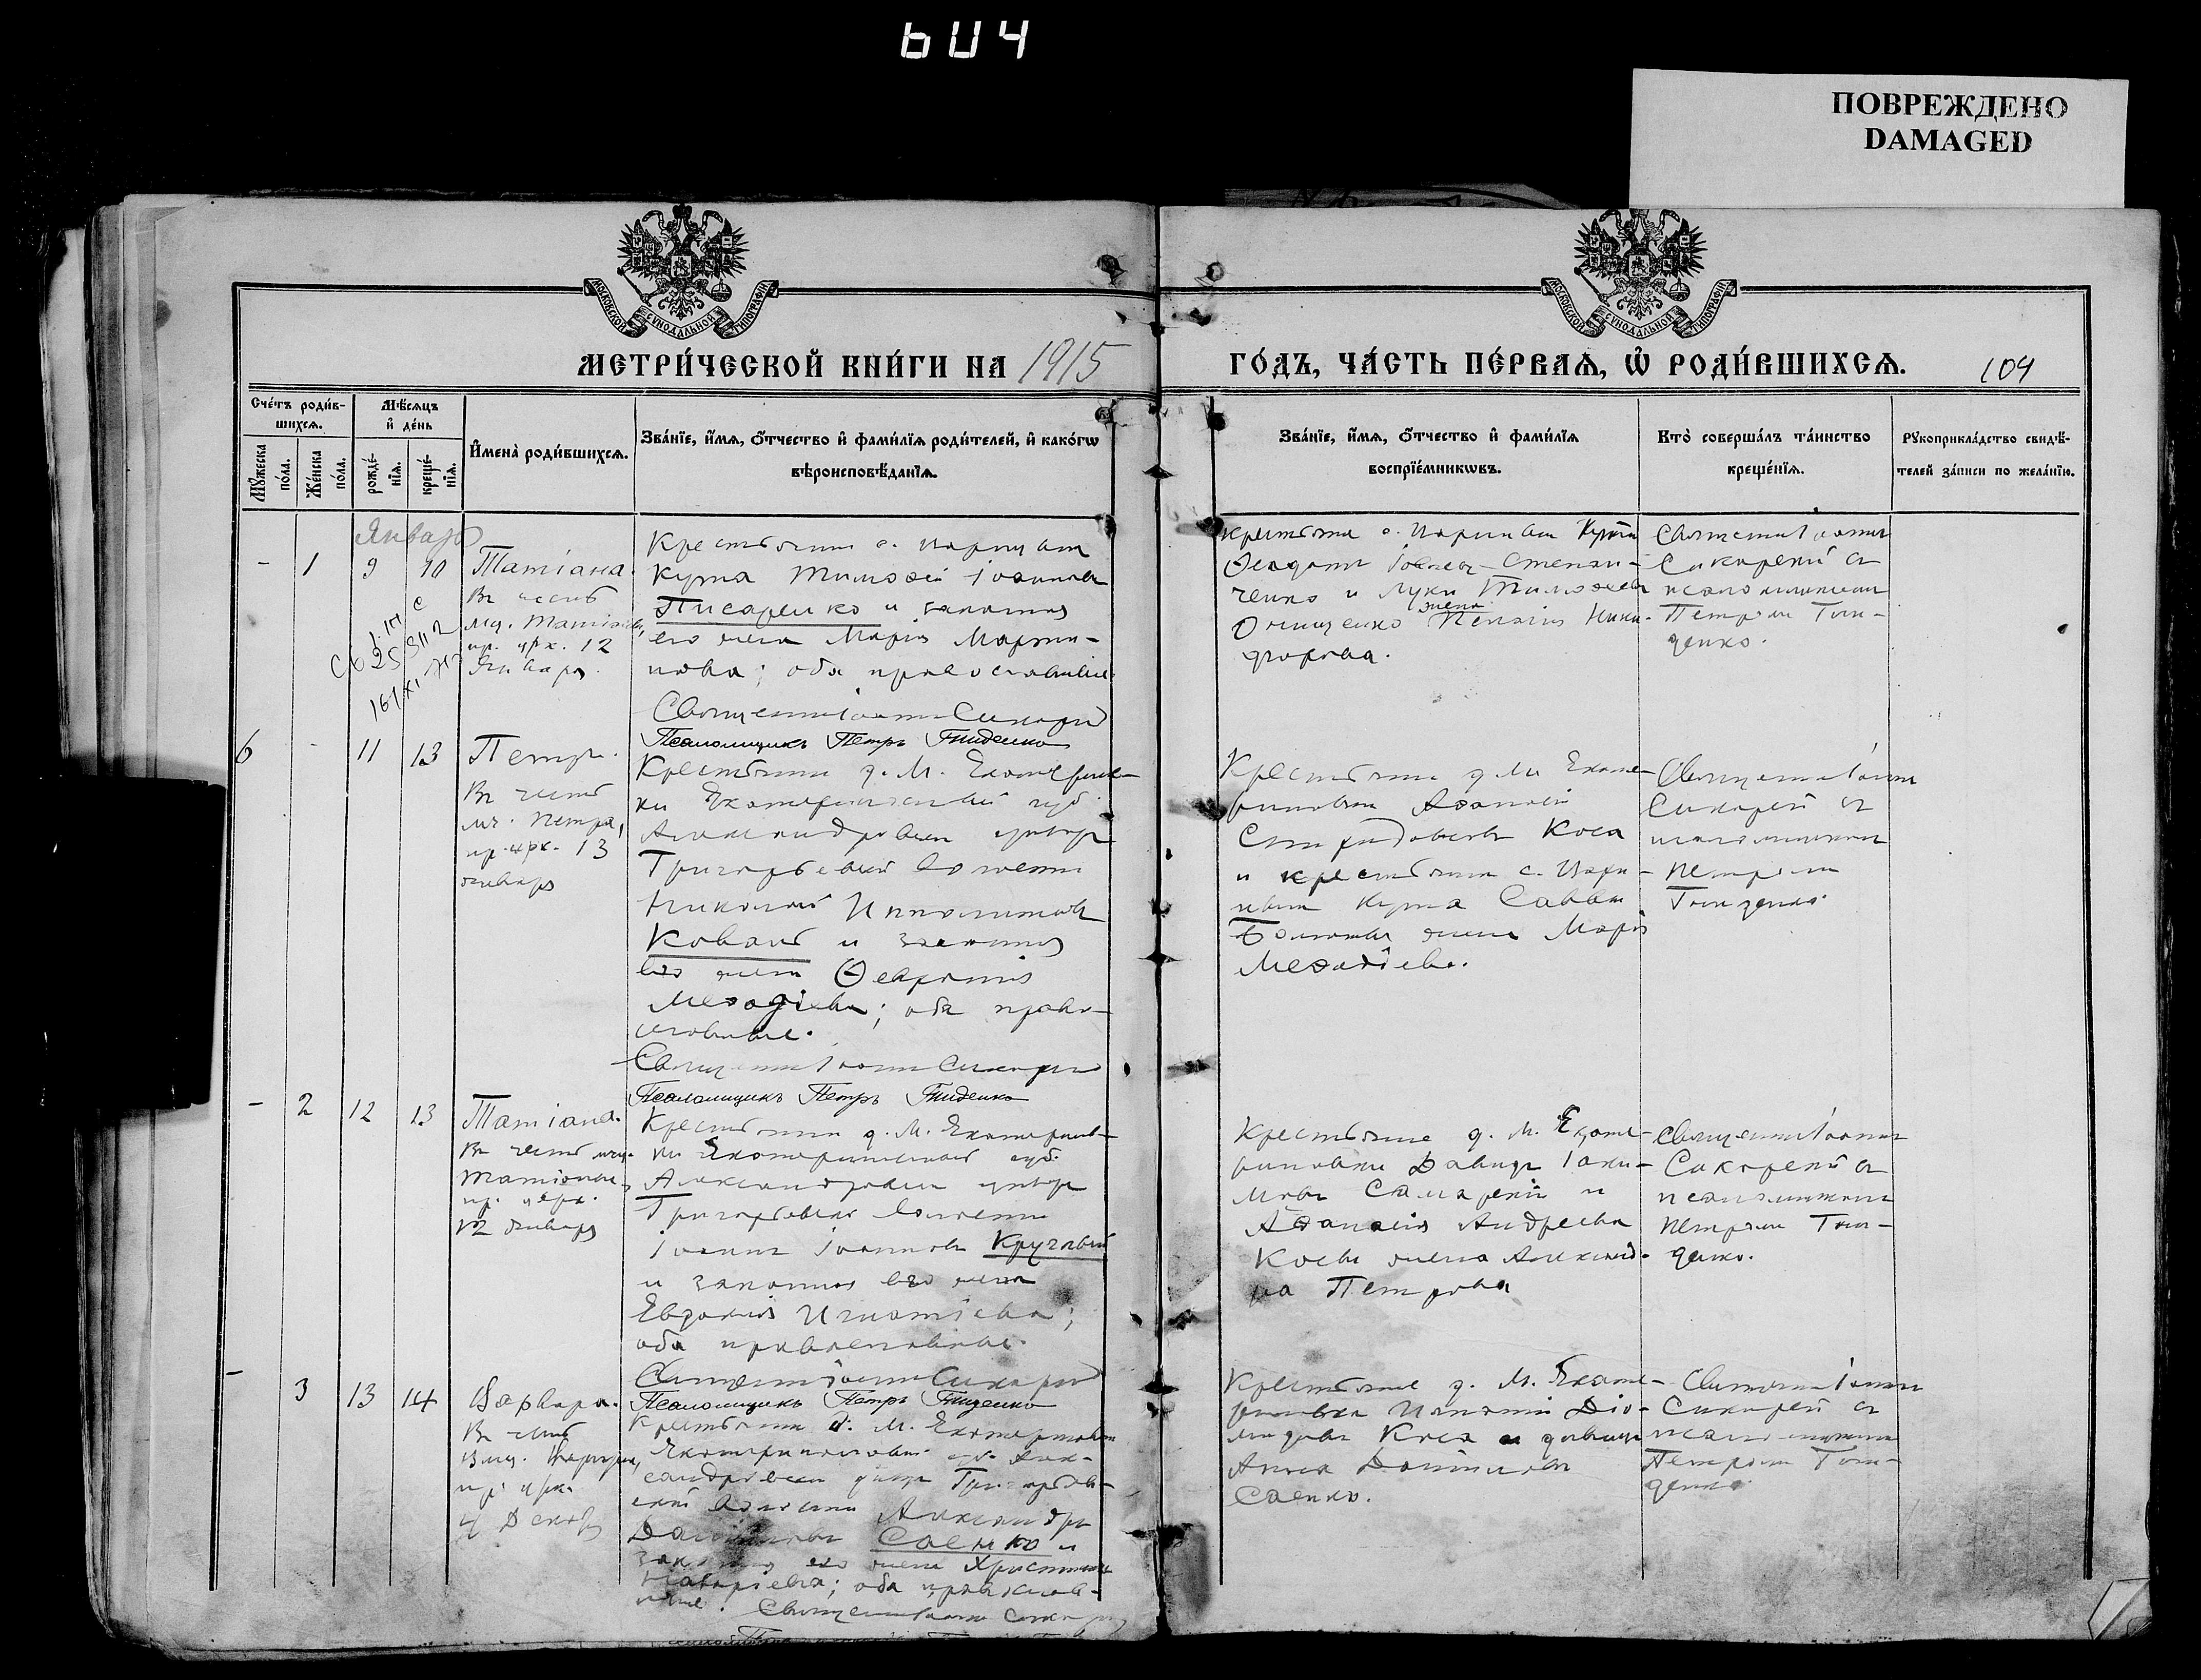 6U4
ПОВРЕЖДЕНО
DAMAGED
МОСКОВСКОЙ СѴНОДАЛЬНОЙ ТИПОГРАФІИ
МОСКОВСКОЙ СѴНОДАЛЬНОЙ ТИПОГРАФІИ
МЕТРИ́ЧЕСКОЙ КНИ́ГИ НА 1915
ГО́ДЪ, ЧА́СТЬ ПЕ́РВАѦ, Ѡ҆ РОДИ́ВШИХСѦ.
104
Сче́тъ роди́в-
шихсѧ.
Мѣ́сѧцъ
и҆ де́нь
Мꙋ́жеска
по́ла.
Же́нска
по́ла.
рожде́-
нїѧ.
креще́-
нїѧ.
И҆мена̀ роди́вшихсѧ.
Зва́нїе, и҆́мѧ, ѻ҆́тчество и҆ фами́лїѧ роди́телей, и҆ како́гѡ
вѣроисповѣ́данїѧ.
Зва́нїе, и҆́мѧ, ѻ҆́тчество и҆ фами́лїѧ
воспрїе́мникѡвъ.
Кто̀ соверша́лъ та́инство
креще́нїѧ.
Рꙋкоприкла́дство свидѣ́-
телей за́писи по жела́нїю.
Январь
- 1 9 10
Татіана.
Въ честь
мц. Татіаны,
пр. црк. 12
Января.
Крестьянинъ с.
Кута Тимоѳей Іоанновъ
Писаренко и законная
его жена Марія Марти-
нова; оба православные.
Священникъ Іоаннъ Сикорскій
Псаломщикъ Петръ Гниденко
Крестьяне с.
Степан-
ченко и Луки Тимоѳеева
Онищенко жена Ники-
форова.
Священникъ Іоаннъ
Сикорскій съ
псаломщикомъ
Петромъ Гни-
денко.
6 - 11 13
Петръ.
Въ честь
мч. Петра,
пр. црк. 13
января
Крестьянинъ д. М. Екатеринов-
ки Екатеринославской губ.
Александровскаго уѣзда
Григорьевской волости
Николай Ипполитовъ
Коваль и законная
его жена Ѳевронія
Меѳодіева; оба право-
славные.
Священникъ Іоаннъ Сикорскій
Псаломщикъ Петръ Гниденко
Крестьяне д. М. Екате-
риновки Аѳанасій
Спиридоновъ Коса
и крестьянина с.
Кута Саввы
жена Марія
Меѳодіева.
Священникъ Іоаннъ
Сикорскій съ
псаломщикомъ
Петромъ
Гниденко.
- 2 12 13
Татіана.
Въ честь мчц.
Татіаны,
пр. церк.
12 января
Крестьянинъ д. М. Екатеринов-
ки Екатеринославской губ.
Александровскаго уѣзда
Григорьевской волости
Іоаннъ Іоанновъ Круглый
и законная его жена
Евдокія Игнатіева;
оба православные.
Священникъ Іоаннъ Сикорскій
Псаломщикъ Петръ Гниденко
Крестьяне д. М. Екате-
риновки Давидъ Іоаки-
мовъ Самарскій и
Аѳанасія Андреева
Косы жена Александ-
ра Петрова
Священникъ Іоаннъ
Сикорскій съ
псаломщикомъ
Петромъ Гни-
денко.
- 3 13 14
Варвара.
Въ честь
вмц. Варвары,
пр. црк.
4 Декабря
Крестьянинъ д. М. Екатериновки
Екатеринославской губ. Алек-
сандровскаго уѣзда Григорьев-
ской волости Александръ
Даніиловъ Саенко и
законная его жена Христина
оба православ-
ные. Священникъ Іоаннъ Сикорскій
Крестьяне д. М. Екате-
риновки Діо-
мидовъ Коса и дѣвица
Анна Даніилова
Саенко.
Священникъ Іоаннъ
Сикорскій съ
псаломщикомъ
Петромъ Гни-
денко